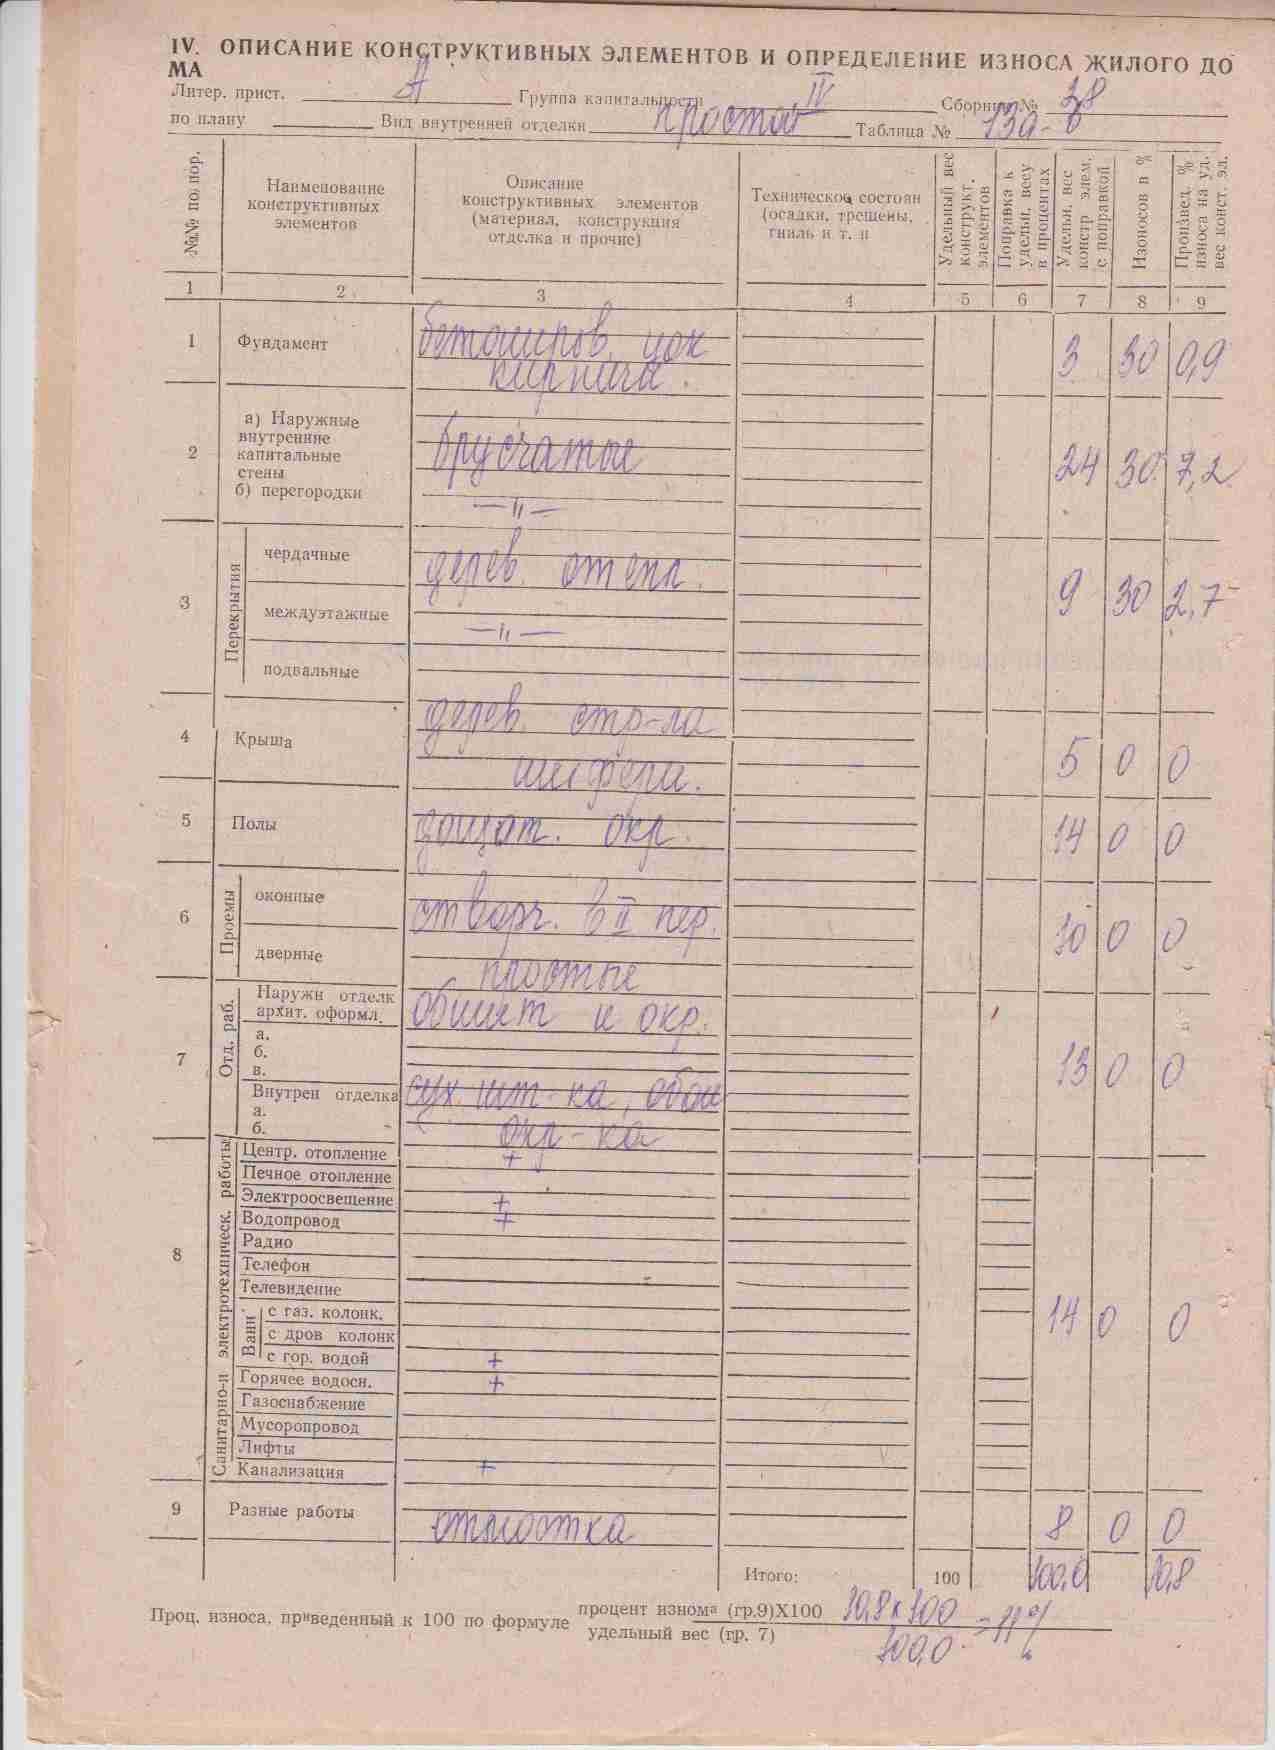 IV. ОПИСАНИЕ КОНСТРУКТИВНЫХ ЭЛЕМЕНТОВ И ОПРЕДЕЛЕНИЕ ИЗНОСА ЖИЛОГО ДО
МА
Литер. прист. А Группа капитальности IV Сборник № 28
по плану Вид внутренней отделки простой Таблица № 13а-
№№ по пор.
Наименование конструктивных элементов
Описание конструктивных элементов (материал, конструкция отделка и прочие)
Техническое состоян (осадки, трещены, гниль и т. п
Удельный вес конструкт. элементов
Поправка к удельн. весу в процентах
Удельн. вес констр элем. с поправкой
Изоносов в %
Произвед. % износа на уд. вес конст. эл.
1 2 3 4 5 6 7 8 9
1 Фундамент бетониров. цок кирпича. 3 30 0,9
2 а) Наружные внутренние капитальные стены брусчатые 24 30 7,2
б) перегородки —"—
3 Перекрытия чердачные дерев. отепл. 9 30 2,7
междуэтажные —"—
подвальные
4 Крыша дерев. стр-ла шифери. 5 0 0
5 Полы дощат. окр. 14 0 0
6 Проемы оконные створч. в II пер. 10 0 0
дверные простые
7 Отд. раб. Наружн отделк архит. оформл. обшит и окр. 13 0 0
а.
б.
в.
Внутрен отделка сух. шт-ка, обои
а.
б. окр-ка
8 Санитарно-и электротехническ. работы
Центр. отопление +
Печное отопление
Электроосвещение +
Водопровод +
Радио
Телефон
Телевидение
Ванн с газ. колонк. 14 0 0
с дров колонк
с гор. водой +
Горячее водосн. +
Газоснабжение
Мусоропровод
Лифты
Канализация +
9 Разные работы отмостка 8 0 0
Итого: 100 100,0 10,8
Проц. износа, приведенный к 100 по формуле процент изнома (гр.9)Х100 10,8 х 100
удельный вес (гр. 7) 100,0 = 11%